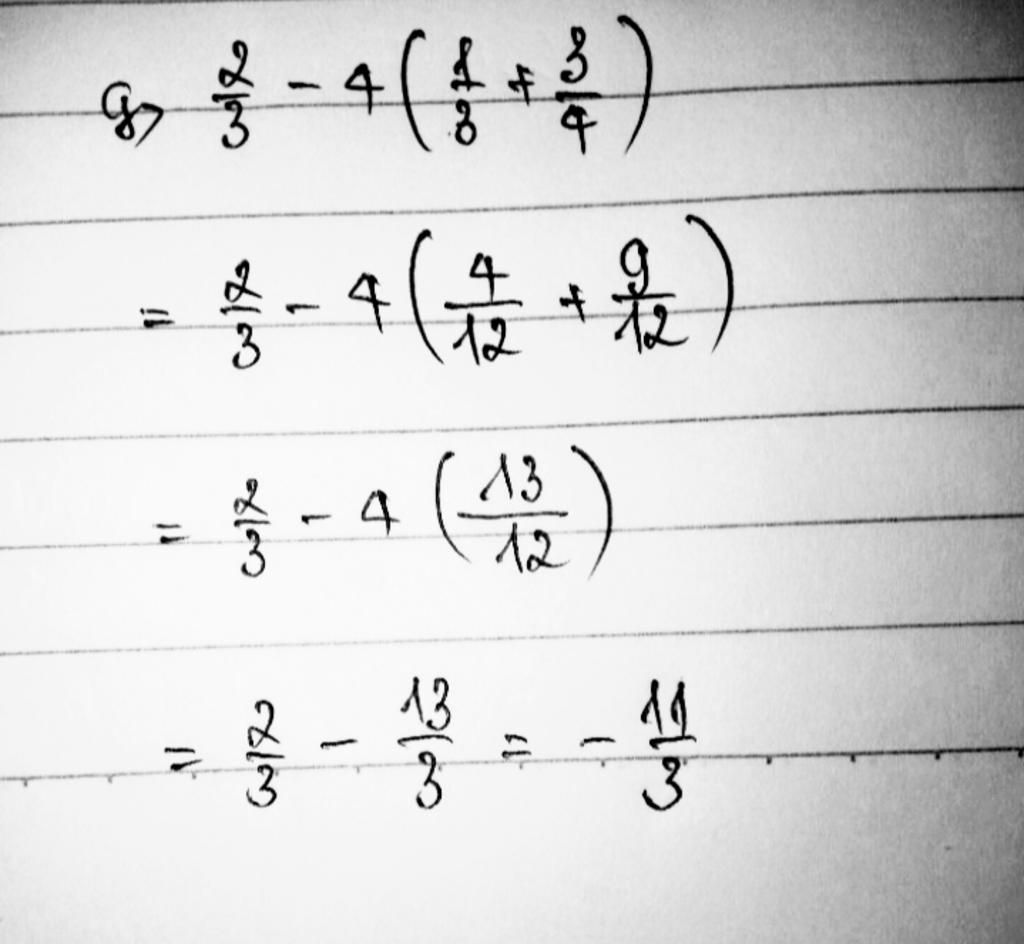 g, 2/3 - 4 (1/3 + 3/4)
= 2/3 - 4 (4/12 + 9/12)
= 2/3 - 4 (13/12)
= 2/3 - 13/3 = - 11/3